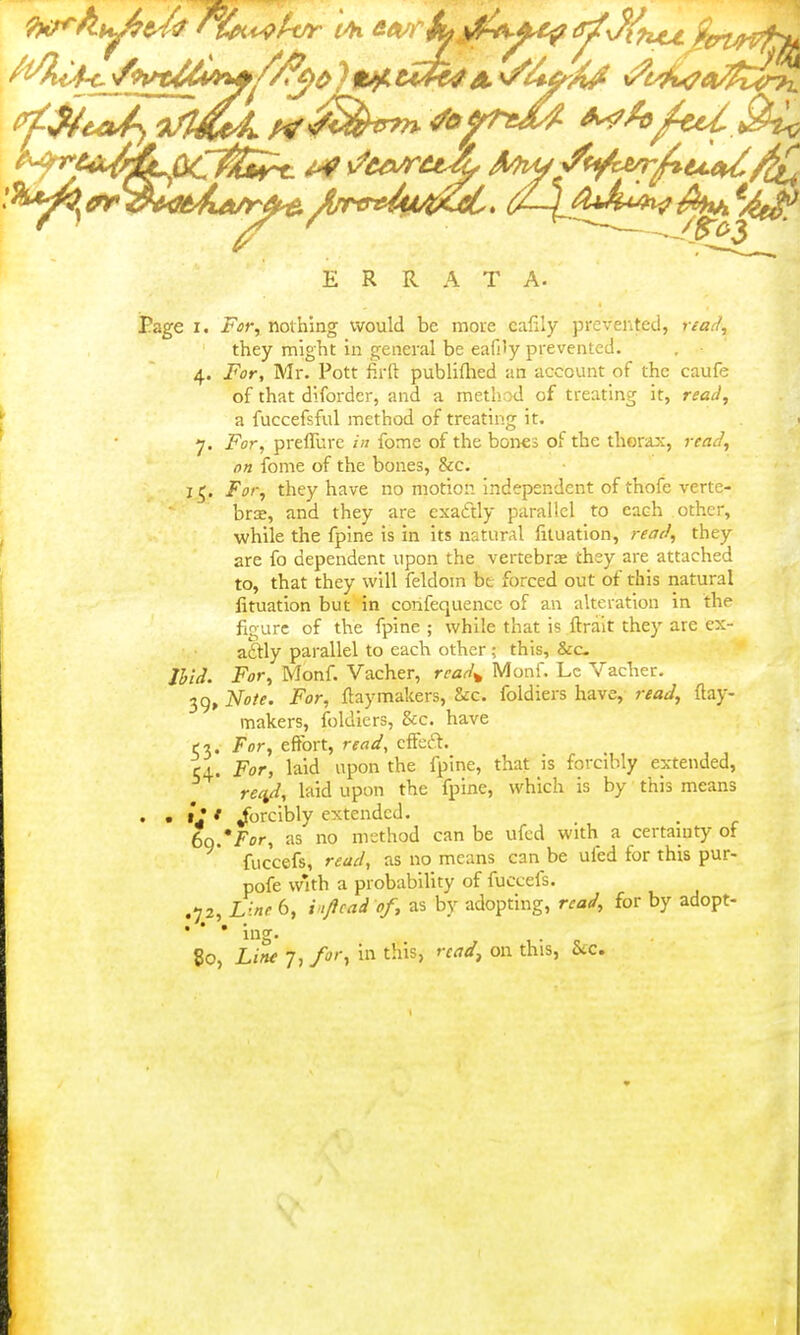 in
of
White Swelling (/790)
a slight
of Heat, which is seldom so great as to feel
scarcely any
or
1803
E R R A T A.
Page 1. For, nothing would be more eaſily prevented, read,
they might in general be eaſily prevented.
4. For, Mr. Pott firſt publiſhed an account of the cauſe
of that diſorder, and a method of treating it, read,
a ſucceſsful method of treating it.
7. For, preſſure in ſome of the bones of the thorax, read,
on ſome of the bones, &c.
15. For, they have no motion independent of thoſe verte-
bræ, and they are exactly parallel to each other,
while the ſpine is in its natural ſituation, read, they
are ſo dependent upon the vertebræ they are attached
to, that they will ſeldom be forced out of this natural
ſituation but in conſequence of an alteration in the
figure of the ſpine ; while that is ſtrait they are ex-
actly parallel to each other ; this, &c.
Ibid. For, Monſ. Vacher, read, Monſ. Le Vacher.
39, Note. For, ſtaymakers, &c. ſoldiers have, read, ſtay-
makers, ſoldiers, &c. have
53. For, effort, read, effect.
54. For, laid upon the ſpine, that is forcibly extended,
read, laid upon the ſpine, which is by this means
forcibly extended.
69. For, as no method can be uſed with a certainty of
ſucceſs, read, as no means can be uſed for this pur-
poſe with a probability of ſucceſs.
72, Line 6, inſtead of, as by adopting, read, for by adopt-
ing.
80, Line 7, for, in this, read, on this, &c.